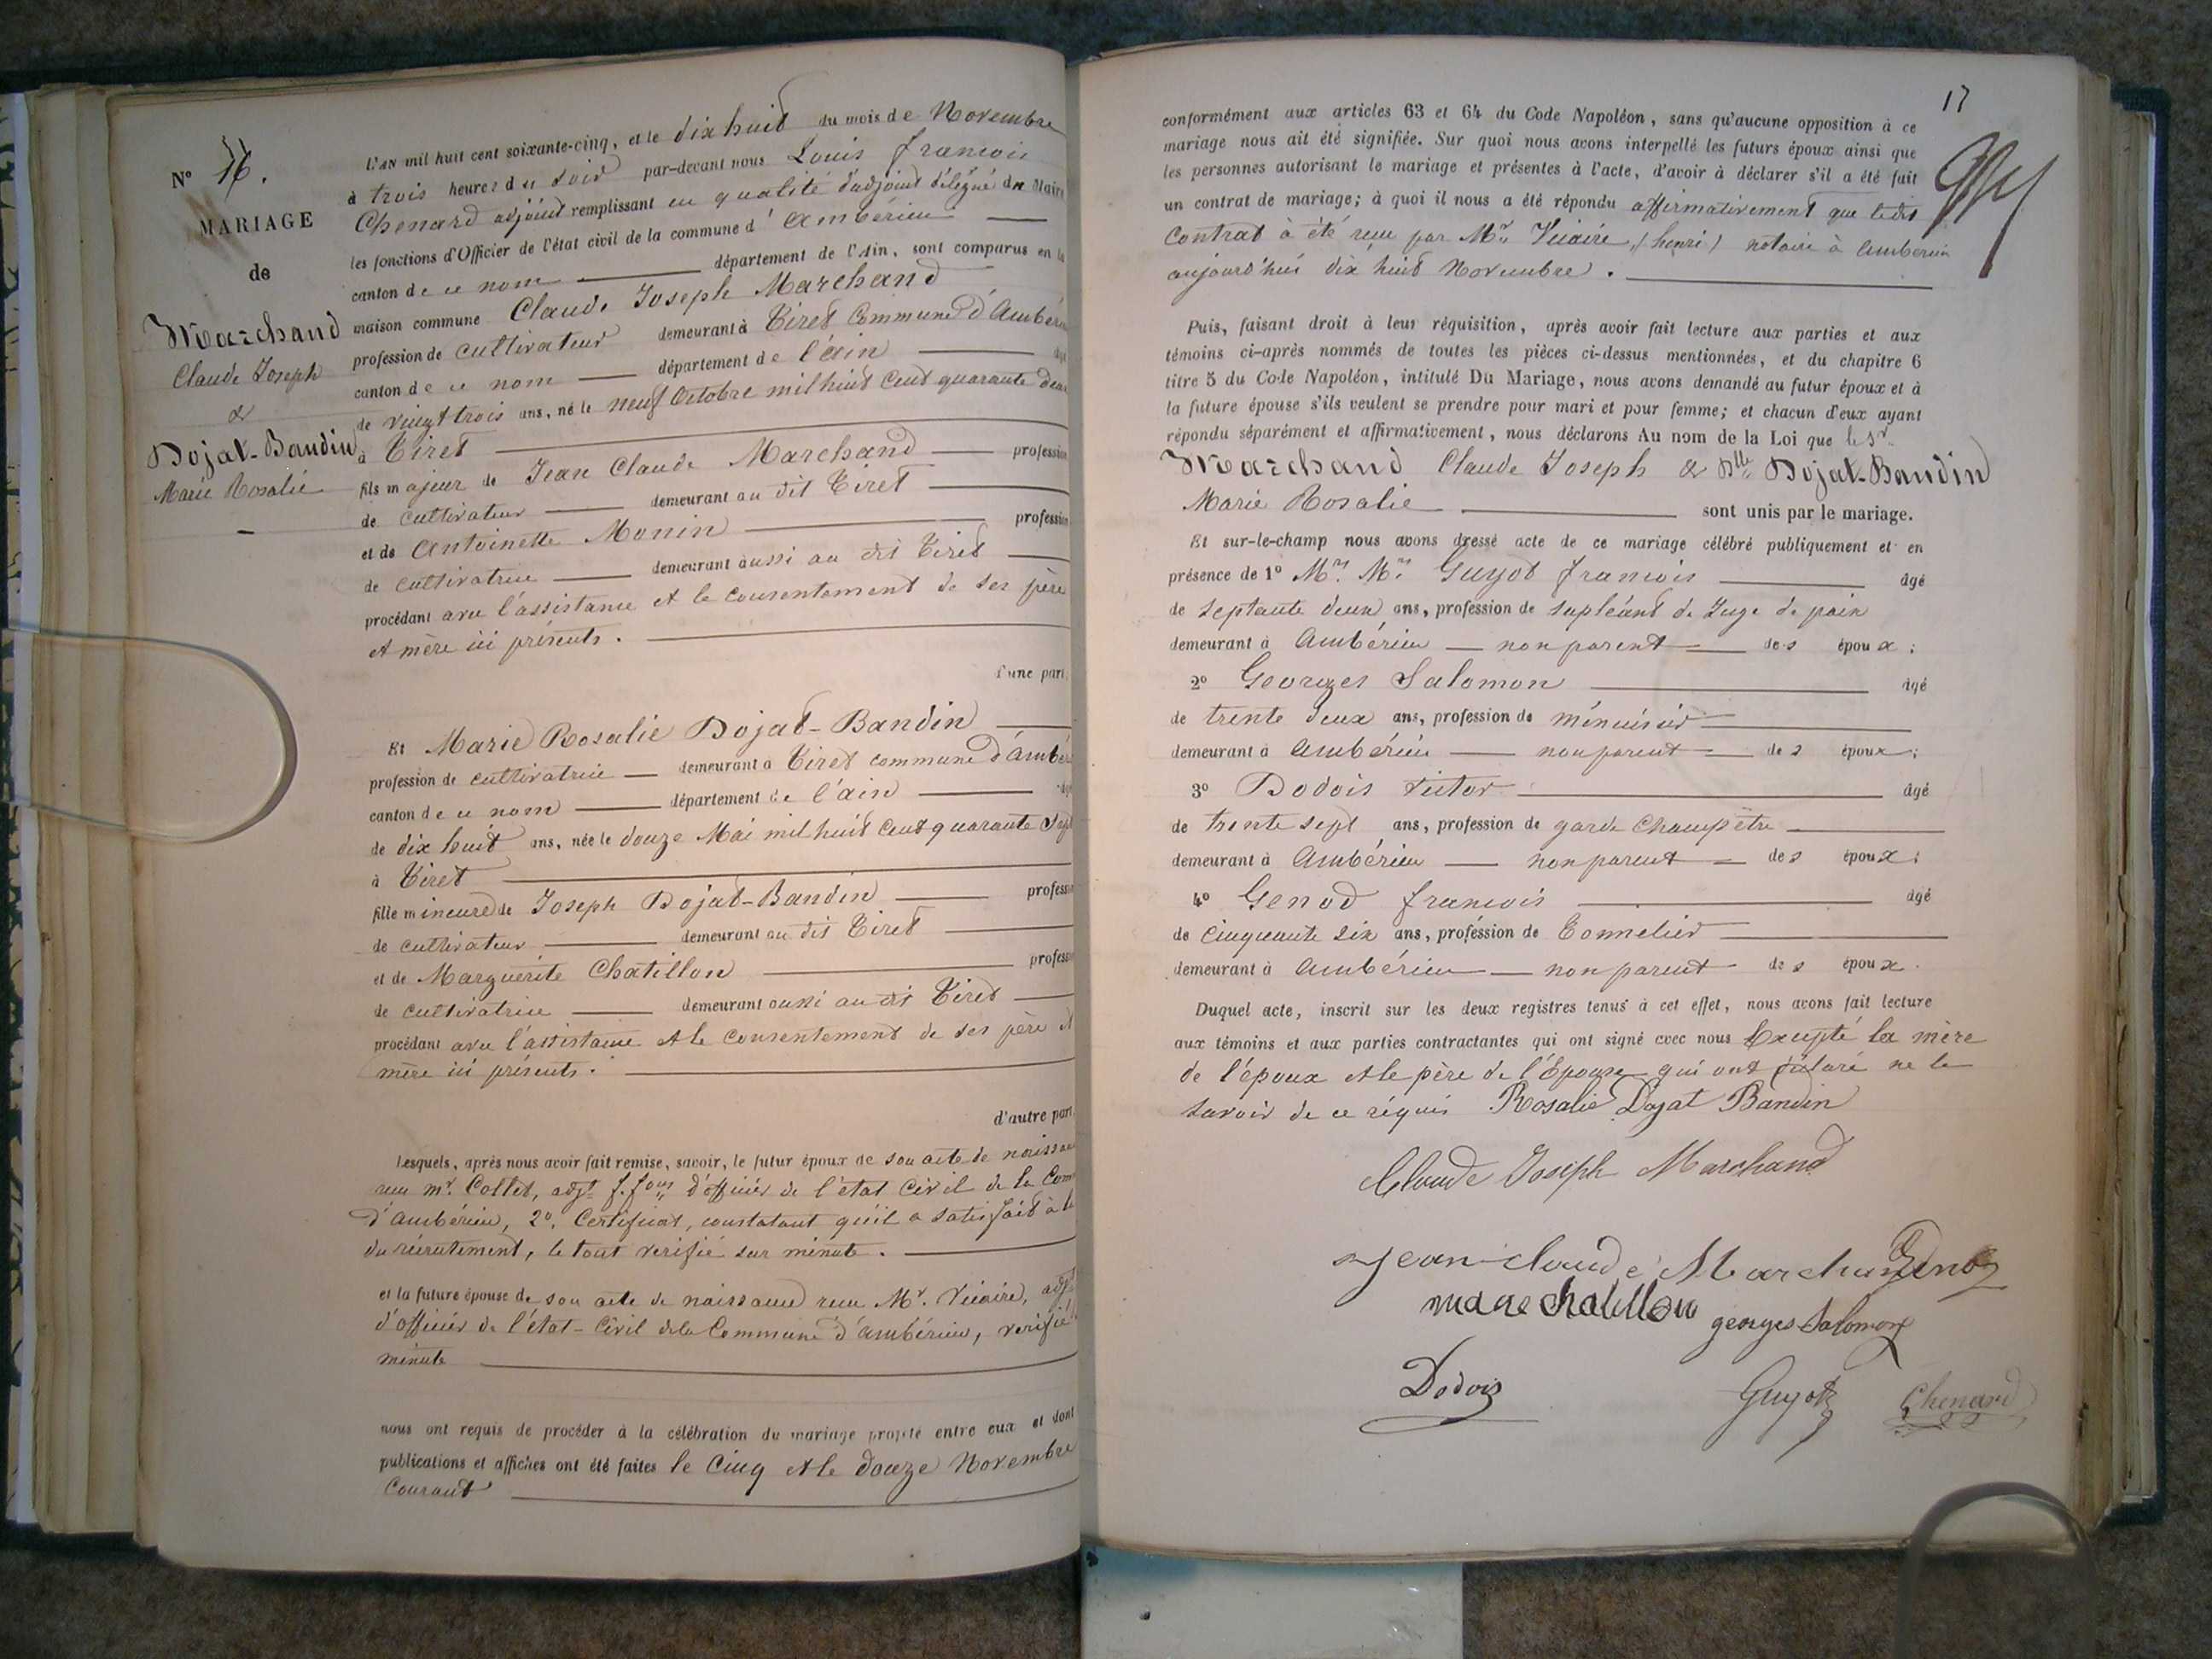 N° 16.
MARIAGE
de
Marchand
Claude Joseph
&
Dojat-Bandin
Marie Rosalie
L'AN mil huit cent soixante-cinq, et le dix huit du mois de Novembre
à trois heures du soir par-devant nous Louis françois
Chenard adjoint remplissant en qualité d'adjoint délégué du Maire
les fonctions d'Officier de l'état civil de la commune d'Ambérieu
canton de ce nom département de l'Ain, sont comparus en la
maison commune Claude Joseph Marchand
profession de cultivateur demeurant à Tiret Commune d'Ambéri
canton de ce nom département de l'ain âgé
de vingt trois ans, né le neuf Octobre mil huit cent quarante deux
à Tiret
fils majeur de Jean Claude Marchand profession
de cultivateur demeurant au dit Tiret
et de Antoinette Monin profession
de cultivatrice demeurant aussi au dit Tiret
procédant avec l'assistance et le consentement de ses père
et mère ici présents.
d'une part,
Et Marie Rosalie Dojat-Bandin
profession de cultivatrice demeurant à Tiret commune d'Ambér
canton de ce nom département de l'ain âgé
de dix huit ans, née le douze Mai mil huit cent quarante sept
à Tiret
fille mineure de Joseph Dojat-Bandin profession
de cultivateur demeurant au dit Tiret
et de Marguerite Chatillon profession
de cultivatrice demeurant aussi au dit Tiret
procédant avec l'assistance et le consentement de ses père et
mère ici présents.
d'autre part.
Lesquels, après nous avoir fait remise, savoir, le futur époux de son acte de naissance
reçu mr. Collet, adjt f. fons d'officier de l'état civil de la Com
d'Ambérieu, 2°. Certificat, constatant qu'il a satisfait à la
du recrutement, le tout verifié sur minute.
et la future épouse de son acte de naissance reçu Mr. Vicaire, adjt
d'officier de l'état-civil de la Commune d'ambérieu, verifié
minute
nous ont requis de procéder à la célébration du mariage projeté entre eux et dont
publications et affiches ont été faites le Cinq et le douze Novembre
Courant
17
conformément aux articles 63 et 64 du Code Napoléon, sans qu'aucune opposition à ce
mariage nous ait été signifiée. Sur quoi nous avons interpellé les futurs époux ainsi que
les personnes autorisant le mariage et présentes à l'acte, d'avoir à déclarer s'il a été fait
un contrat de mariage; à quoi il nous a été répondu affirmativement que ledit
Contrat à été reçu par Mr. Vicaire (henri) notaire à Ambérieu
aujourd'hui dix huit Novembre.
Puis, faisant droit à leur réquisition, après avoir fait lecture aux parties et aux
témoins ci-après nommés de toutes les pièces ci-dessus mentionnées, et du chapitre 6
titre 5 du Code Napoléon, intitulé Du Mariage, nous avons demandé au futur époux et à
la future épouse s'ils veulent se prendre pour mari et pour femme; et chacun d'eux ayant
répondu séparément et affirmativement, nous déclarons Au nom de la Loi que le Sr.
Marchand Claude Joseph & Dlle Dojat-Bandin
Marie Rosalie sont unis par le mariage.
Et sur-le-champ nous avons dressé acte de ce mariage célébré publiquement et en
présence de 1° Mrs. Mrs. Guyot françois âgé
de septante deux ans, profession de supléant de Juge de paix
demeurant à Ambérieu non parent des époux;
2° Georges Salomon âgé
de trente deux ans, profession de ménuisier
demeurant à Ambérieu non parent des époux;
3° Dodois victor âgé
de trente sept ans, profession de garde Champêtre
demeurant à Ambérieu non parent des époux;
4° Genod françois âgé
de cinquante six ans, profession de Tonnelier
demeurant à Ambérieu non parent des époux.
Duquel acte, inscrit sur les deux registres tenus à cet effet, nous avons fait lecture
aux témoins et aux parties contractantes qui ont signé avec nous Excepté la mère
de l'époux et le père de l'épouse qui ont déclaré ne le
savoir de ce réquis Rosalie Dojat Bandin
Claude Joseph Marchand
Jean-claude Marchand Genod
marie chatillon georges Salomon
Dodois Guyot Chenard